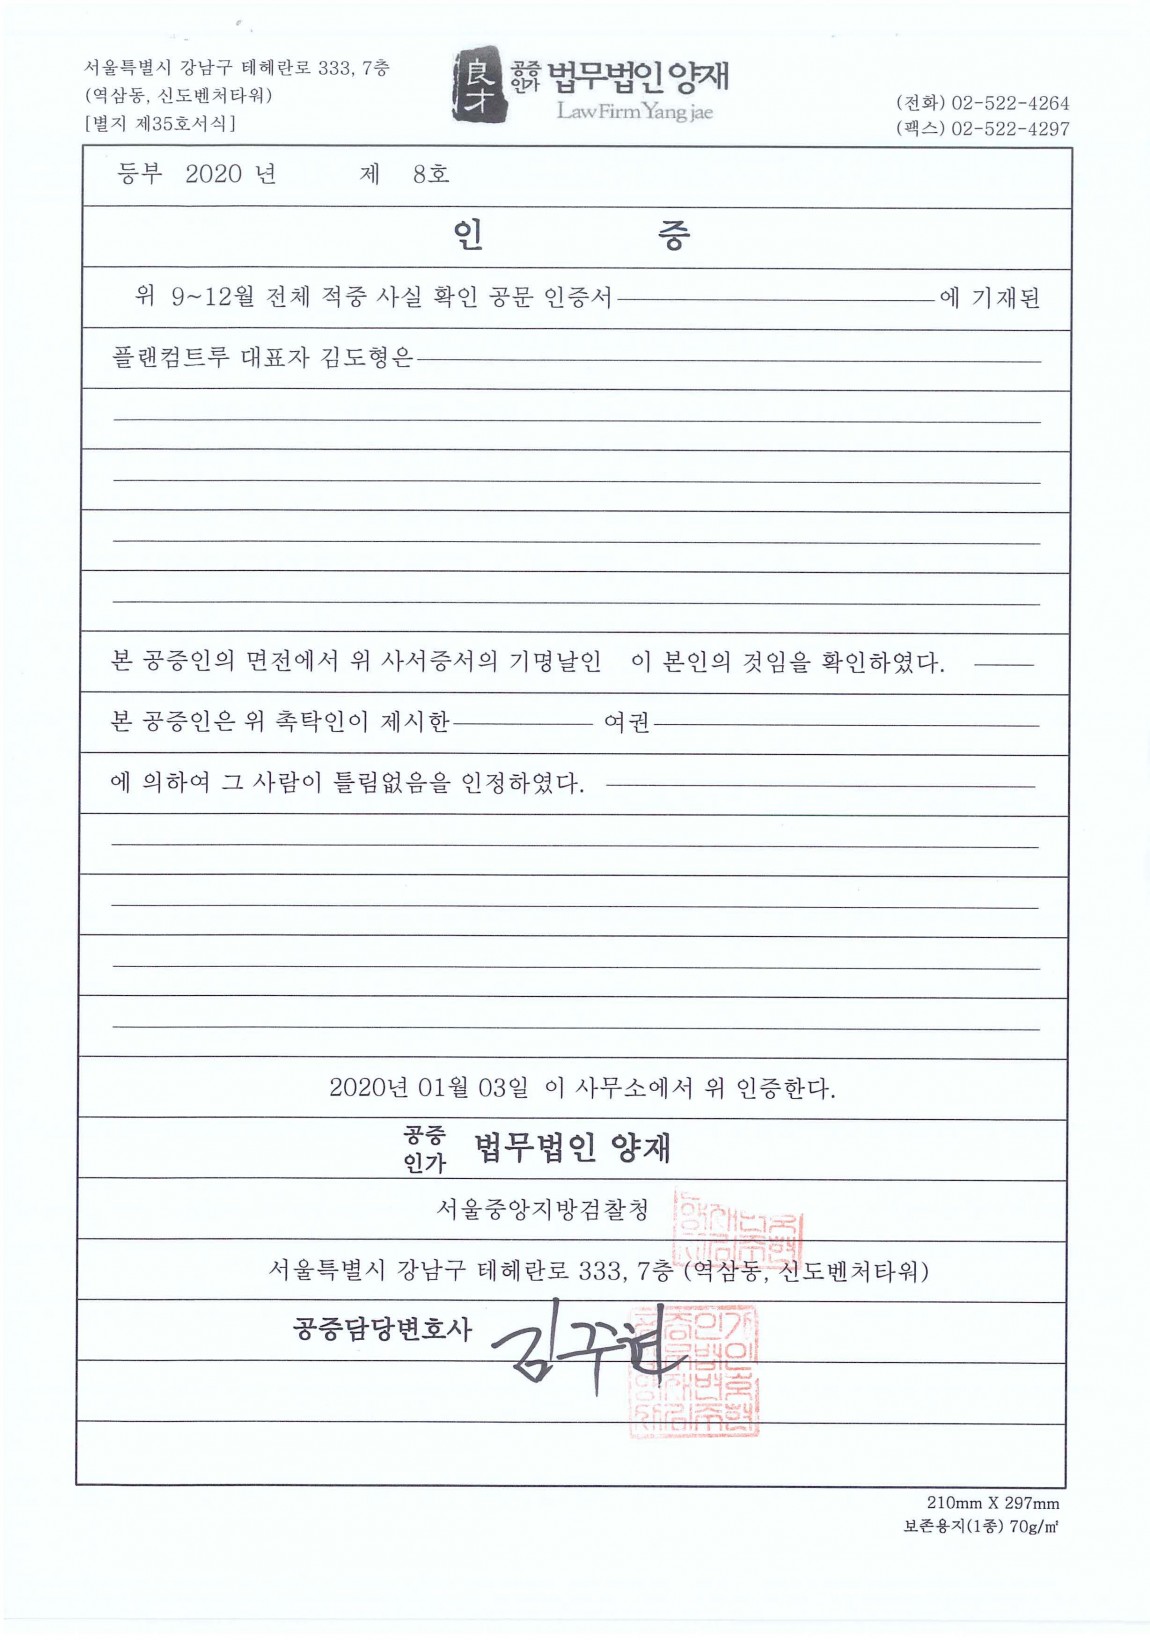 서울특별시 강남구 테헤란로 333, 7층
(역삼동, 신도벤처타워)
[별지 제35호서식]
良才
공증인가 법무법인 양재
Law Firm Yang jae
(전화) 02-522-4264
(팩스) 02-522-4297
등부 2020 년 제 8호
인 증
위 9~12월 전체 적중 사실 확인 공문 인증서 에 기재된
플랜컴트루 대표자 김도형은
본 공증인의 면전에서 위 사서증서의 기명날인 이 본인의 것임을 확인하였다.
본 공증인은 위 촉탁인이 제시한 여권
에 의하여 그 사람이 틀림없음을 인정하였다.
2020년 01월 03일 이 사무소에서 위 인증한다.
공증인가 법무법인 양재
서울중앙지방검찰청
서울특별시 강남구 테헤란로 333, 7층 (역삼동, 신도벤처타워)
공증담당변호사
210mm X 297mm
보존용지(1종) 70g/㎡